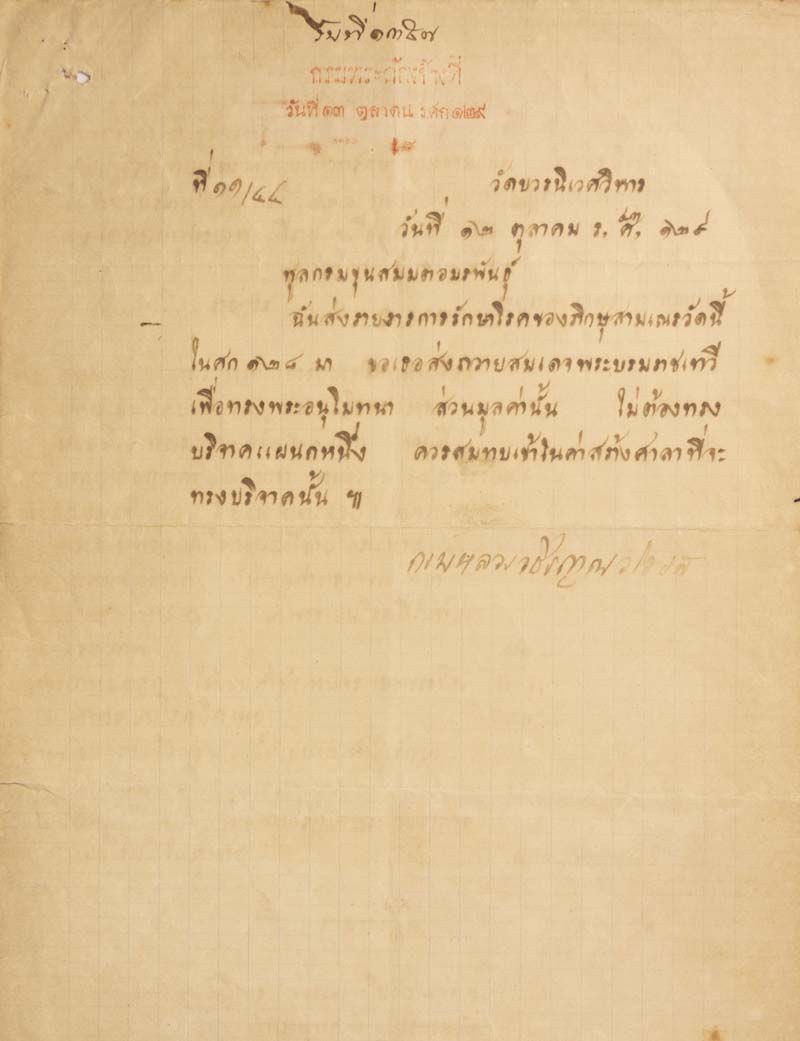 รับที่ ๑๓๕๗
กรมพระคลังข้างที่
วันที่ ๑๓ ตุลาคม ร.ศก ๑๒๙
ที่ ๑๑/๔๔
วัดบวรนิเวศวิหาร
วันที่ ๑๒ ตุลาคม ร, ศ๊ก, ๑๒๙
ทูลกรมขุนสมมตอมรพันธุ์
ฉันส่งรายงารการรักษาโรคของภิกษุสามเณรวัดนี้
ในศก ๑๒๘ มา ขอเธอส่งถวายสมเดจพระบรมราชเทวี
เพื่อทรงพระอนุโมทนา ส่วนมูลค่านั้น ไม่ต้องทรง
บริจาคแผนกหนึ่ง ควรสมทบเข้าในค่าสถ้างศาลาที่จะ
ทรงบริจาคนั้น ๚
กรมหลวงวชิรญาณวโรรส